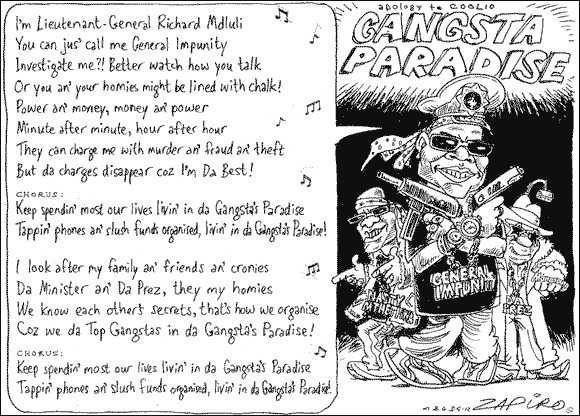 I'm Lieutenant-General Richard Mdluli
You can jus' call me General Impunity
Investigate me?! Better watch how you talk
Or you an' your homies might be lined with chalk!
Power an' money, money an' power
Minute after minute, hour after hour
They can charge me with murder an' fraud an' theft
But da charges disappear coz I'm Da Best!
CHORUS:
Keep spendin' most our lives livin' in da Gangsta's Paradise
Tappin' phones an' slush funds organised, livin' in da Gangsta's Paradise!
I look after my family an' friends an' cronies
Da Minister an' Da Prez, they my homies
We know each other's secrets, that's how we organise
Coz we da Top Gangstas in da Gangsta's Paradise!
CHORUS:
Keep spendin' most our lives livin' in da Gangsta's Paradise
Tappin' phones an' slush funds organised, livin' in da Gangsta's Paradise!
apology to COOLIO
GANGSTA
PARADISE
GENERAL
IMPUNITY
PREZ
ZAPIRO